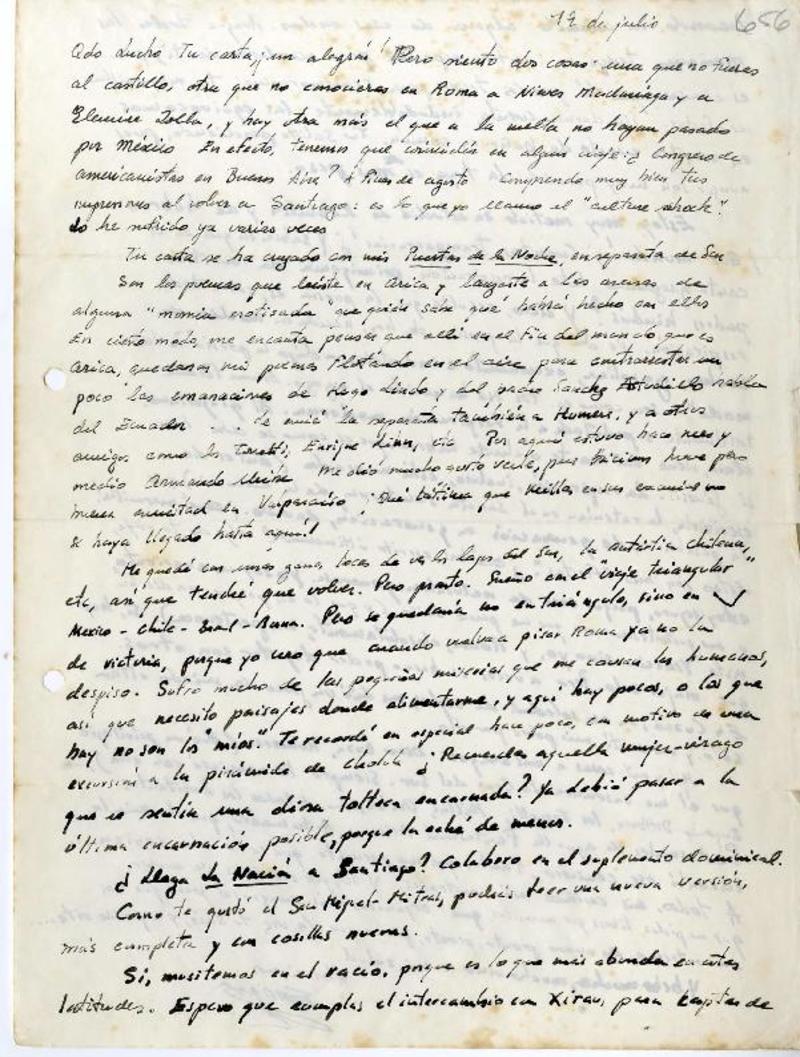 19 de julio
656
Qdo Lucho Tu carta, ¡un alegrón! Pero siento dos cosas: una que no fueras
al castillo, otra que no conocieras en Roma a Nieves Madariaga y a
Elemire Zolla, y hay otra más el que a la vuelta no hayan pasado
por México En efecto, tenemos que coincidir en algún viaje: ¿Congreso de
americanistas en Buenos Aires? A fines de agosto Comprendo muy bien tus
impresiones al volver a Santiago: es lo que yo llamo el "culture shock".
Lo he sufrido ya varias veces
Tu carta se ha cruzado con mis Puertas de la Noche, en separata de
Son los poemas que leíste en Arica y lanzaste a las arenas de
alguna "momia erotizada" que quién sabe qué habrá hecho con ellos
En cierto modo, me encanta pensar que allí en el Fin del mundo, que es
Arica, quedaron mis poemas flotando en el aire para contrarrestar un
poco las emanaciones de Hugo Lindo y del Sánchez Astudillo
del Ecuador . . . Le envié la separata también a Humere, y a otros
amigos como los Enrique Lihn, etc Por aquí estuvo hace mes y
medio Armando Uribe Me dió mucho gusto verle, pues hicimos hace poco
buena amistad en Valparaíso ¡Qué lástima que Cecilia en su no
se haya llegado hasta aquí!
Me quedé con unas ganas locas de ver los lagos del Sur, la antártida chilena,
etc, así que tendré que volver. Pero pronto. Sueño con el "viaje triangular"
Mexico - Chile - - Roma. Pero se quedaría no en triángulo, sino en V
de victoria, porque yo creo que cuando vuelva a pisar Roma ya no la
despiso. Sufro mucho de las pequeñas miserias que me causan los humanos,
así que necesito paisajes donde alimentarme, y aquí hay pocos, o los que
hay no son los "míos." Te recordé en especial hace poco, con motivo de una
excursión a la pirámide de ¿Recuerdas aquella mujer-virago
que se sentía una diosa tolteca encarnada? Ya debió pasar a la
última encarnación posible, porque la eché de menos.
¿Llega La Nación a Santiago? Colaboro en el suplemento dominical.
Como te gustó el San Miguel-Mitras, podrás leer una nueva versión,
más completa y con cosillas nuevas.
Sí, musitemos en el vacío, porque es lo que más abunda en estas
latitudes. Espero que cumplas el intercambio con Xirau, para